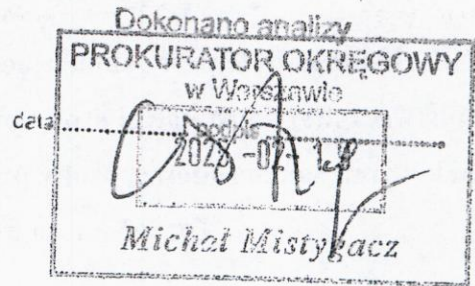 Dokonano analizy
PROKURATOR OKRĘGOWY
w Warszawie
data
podpis
Michał Mistygacz